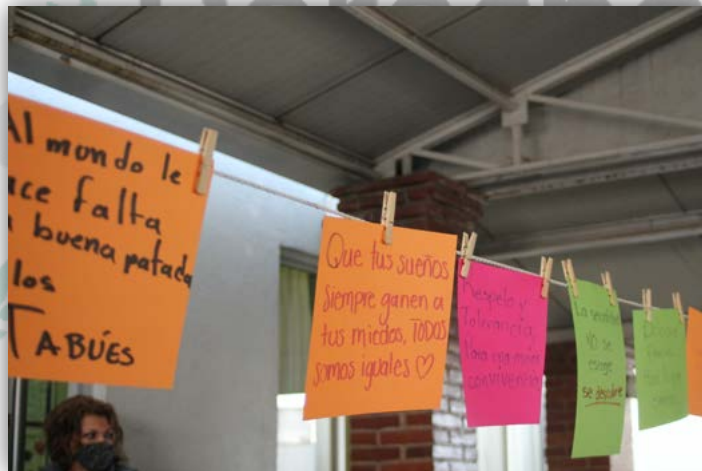 Al mundo le
ace falta
a buena patada
los
TABUÉS
Que tus sueños
siempre ganen a
tus miedos, TODOS
somos iguales ♡
Respeto y
Tolerancia,
convivencia
NO se
escoge
se descubre